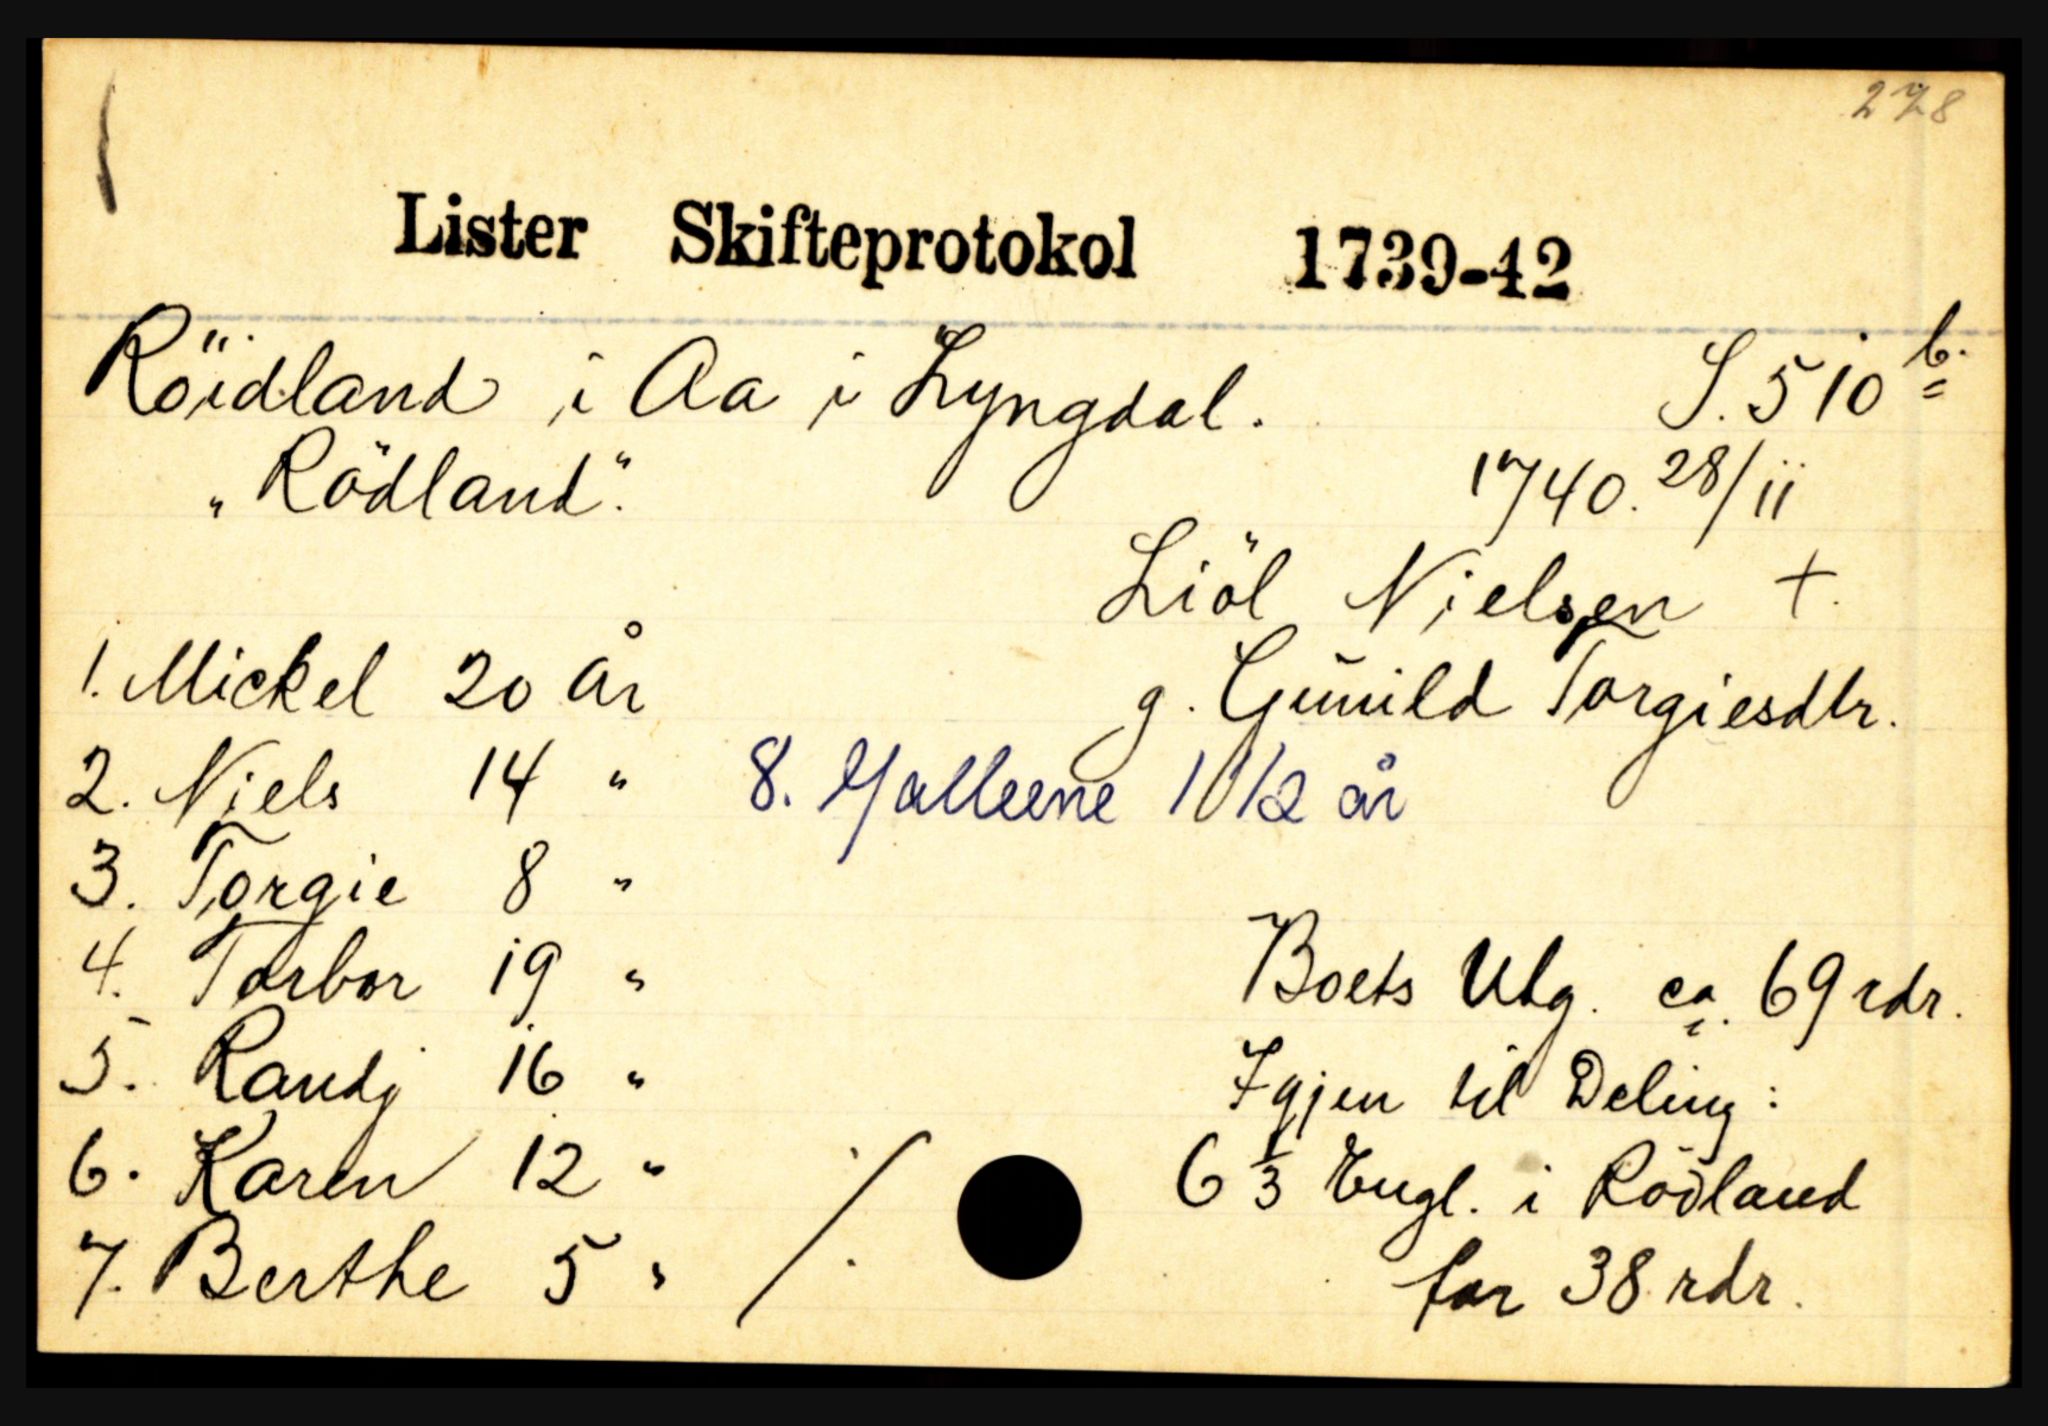 278
Lister Skifteprotokol 1739-42
Röidland i Aa i Lyngdal. S. 510 b.
"Rödland".
1740. 28/11
Liöl Nielsen +.
g. Gunild Torgiesdtr.
1. Mickel 20 år
2. Niels 14 "
8. Malleene 1 1/2 år
3. Torgie 8 "
4. Torbor 19 "
5. Randj 16 "
6. Karen 12 "
7. Berthe 5 "
Boets Utg. ca. 69 rdr.
Igjen til Deling:
6 1/3 Engl. i Rödland
for 38 rdr.
./.